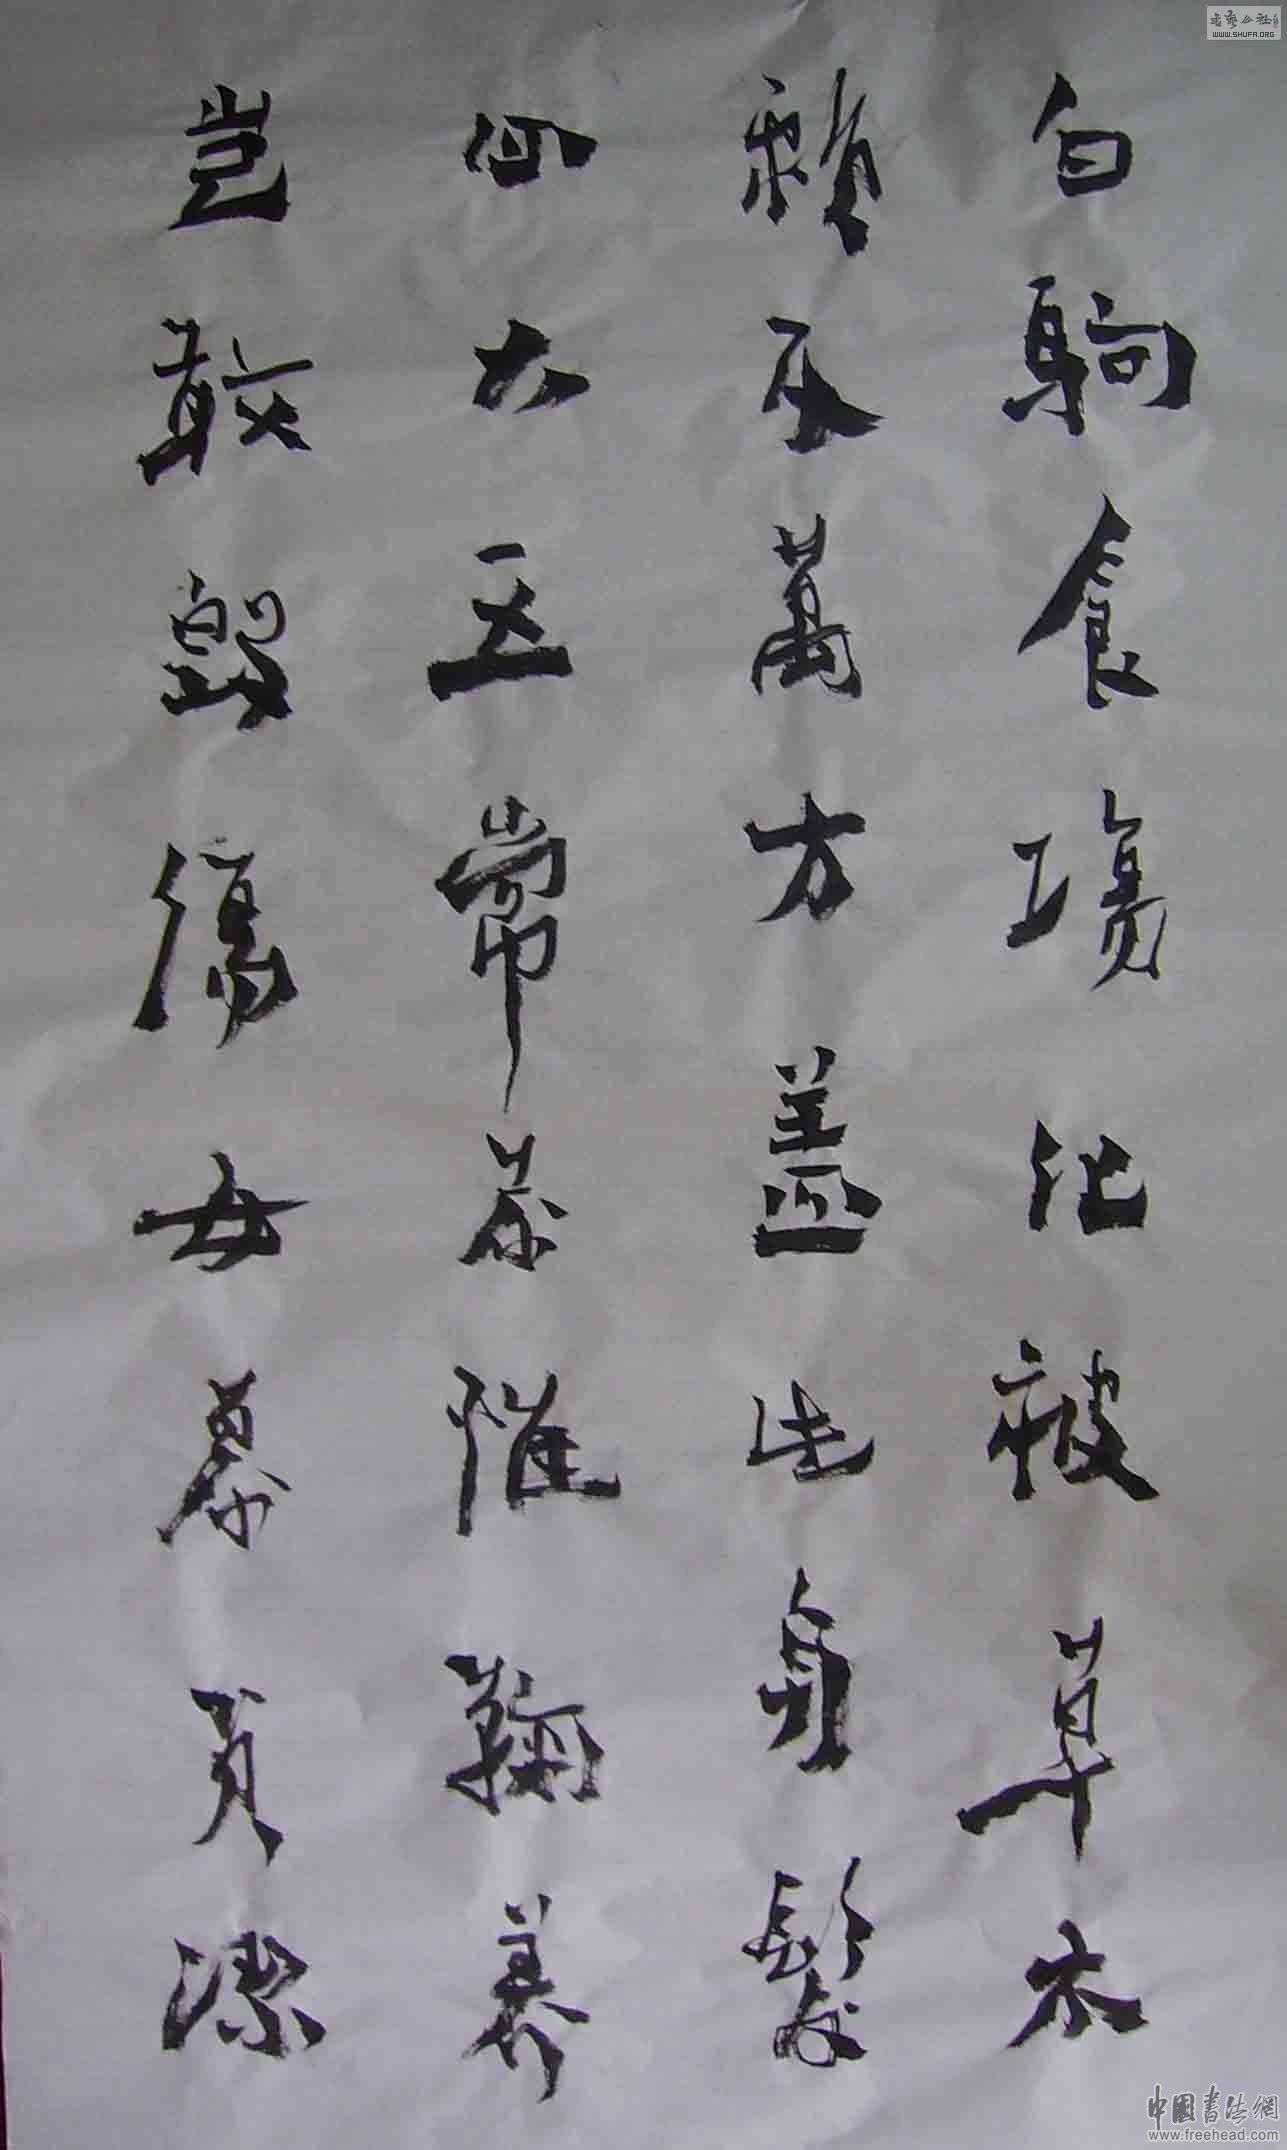 白駒食場化被草木
賴及萬方盖此身髮
四大五常恭惟鞠養
豈敢毀傷女慕貞潔
書藝公社
WWW.SHUFA.ORG
中國書法網
www.freehead.com